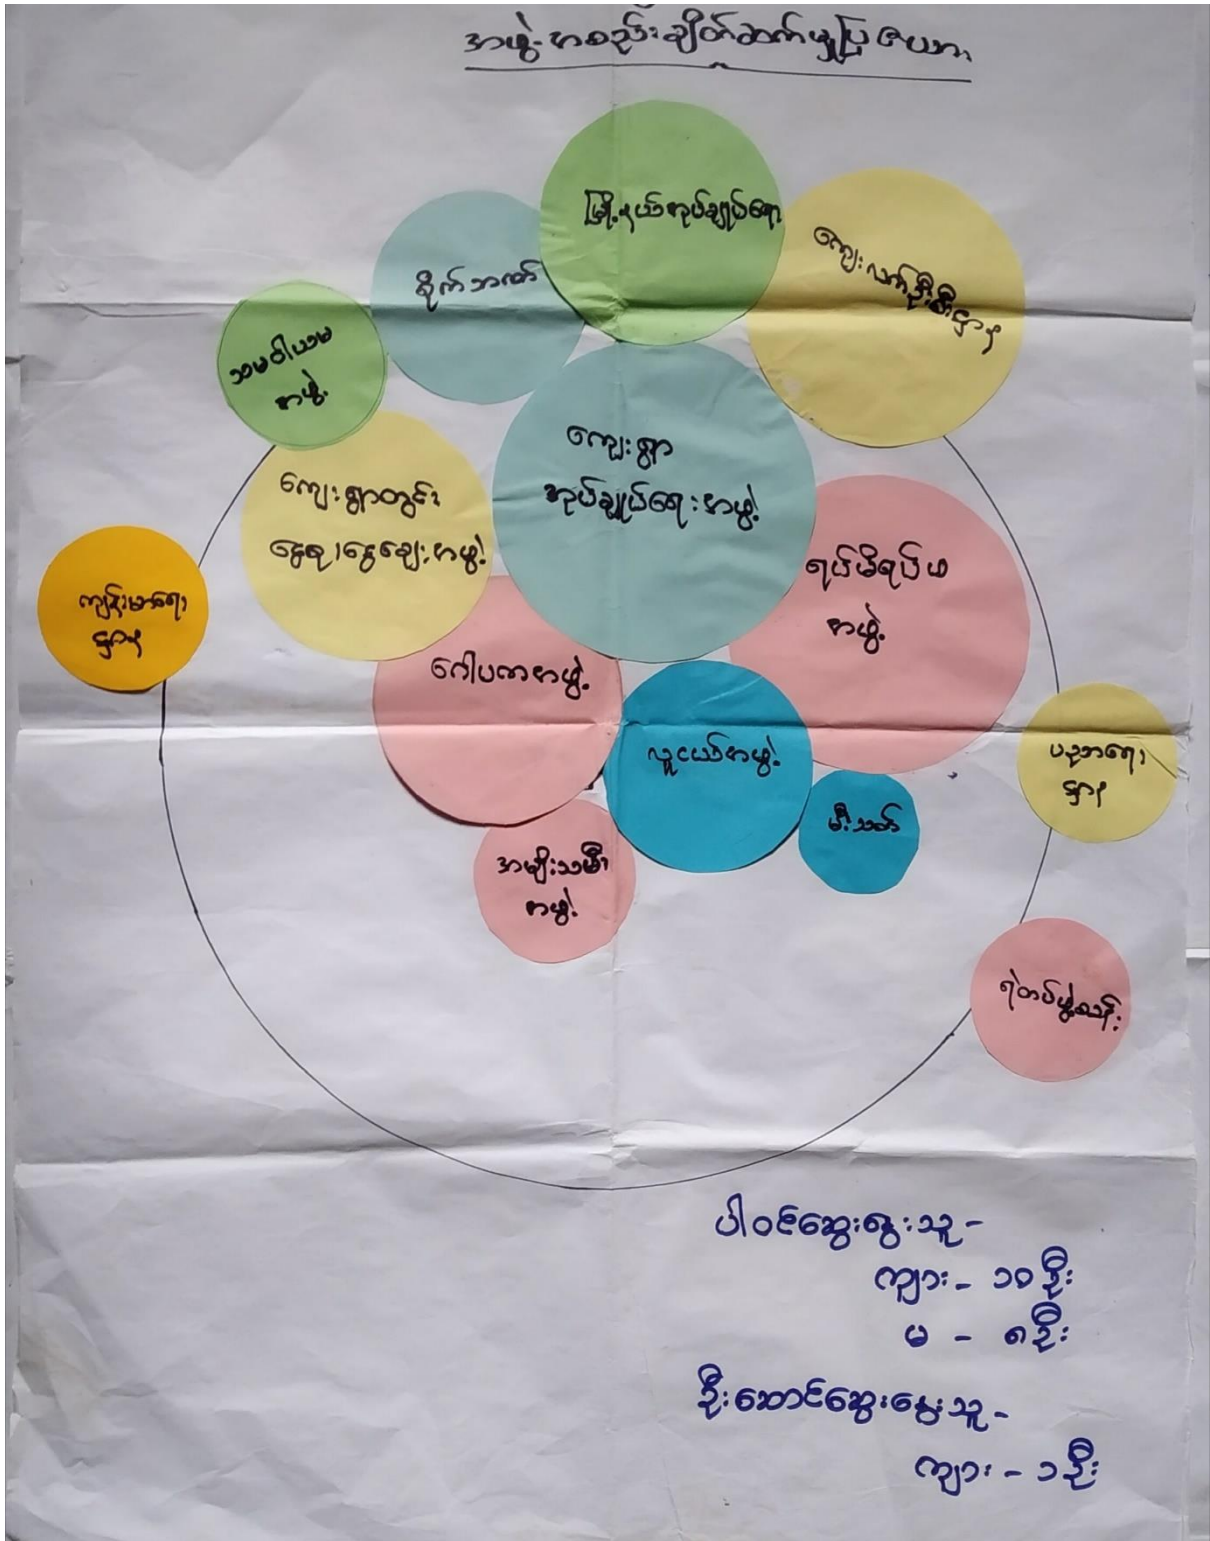 အဖွဲ့အစည်းချိတ်ဆက်မှုပြဇယား
မြို့နယ်အုပ်ချုပ်ရေး
ကျေးလက်ဦးစီးဌာန
စိုက်ဘဏ်
သမဝါယမ
အဖွဲ့
ကျေးရွာ
အုပ်ချုပ်ရေးအဖွဲ့
ကျေးရွာတွင်း
ငွေစု၊ငွေချေးအဖွဲ့
ရပ်မိရပ်ဖ
အဖွဲ့
ကျန်းမာရေး
ဌာန
ဂေါပကအဖွဲ့
လူငယ်အဖွဲ့
ပညာရေး
ဌာန
မီးသတ်
အမျိုးသမီး
အဖွဲ့
ရဲတပ်ဖွဲ့စခန်း
ပါဝင်ဆွေးနွေးသူ-
ကျား- ၁၀ဦး
မ - ၈ဦး
ဦးဆောင်ဆွေးနွေးသူ-
ကျား - ၁ဦး